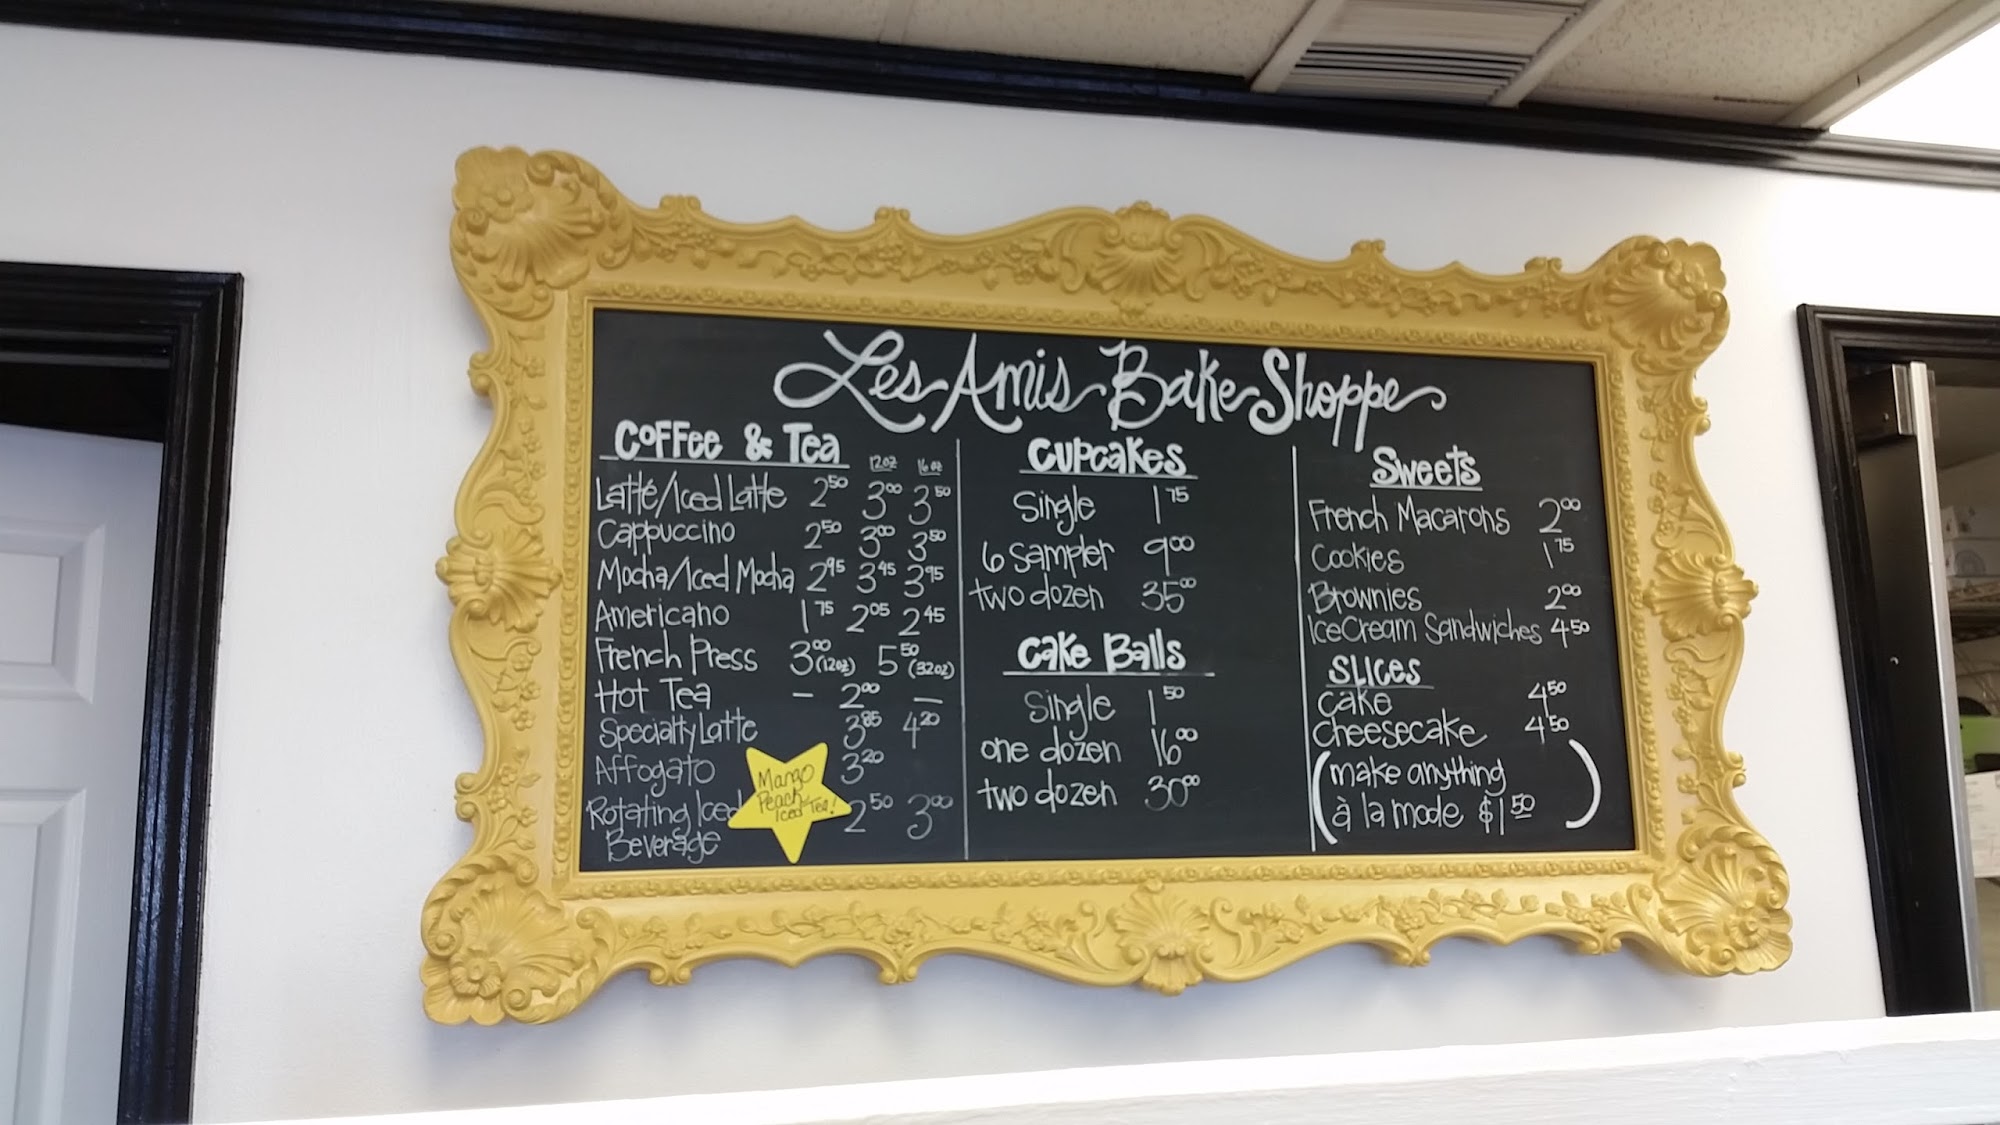 Les Amis Bake Shoppe
Coffee & Tea 12oz 16oz
Latté/Iced Latte 2.50 3.00 3.50
Cappuccino 2.50 3.00 3.50
Mocha/Iced Mocha 2.95 3.45 3.95
Americano 1.75 2.05 2.45
French Press 3.00 (12oz) 5.50 (32oz)
Hot Tea – 2.00 –
Specialty Latte 3.85 4.20
Affogato 3.20
Rotating Iced 2.50 3.00
Beverage
Mango
Peach
Iced Tea!
Cupcakes
Single 1.75
6 sampler 9.00
two dozen 35.00
Cake Balls
Single 1.50
one dozen 16.00
two dozen 30.00
Sweets
French Macarons 2.00
Cookies 1.75
Brownies 2.00
Ice Cream Sandwiches 4.50
Slices
cake 4.50
cheesecake 4.50
(make anything
à la mode $1.50)